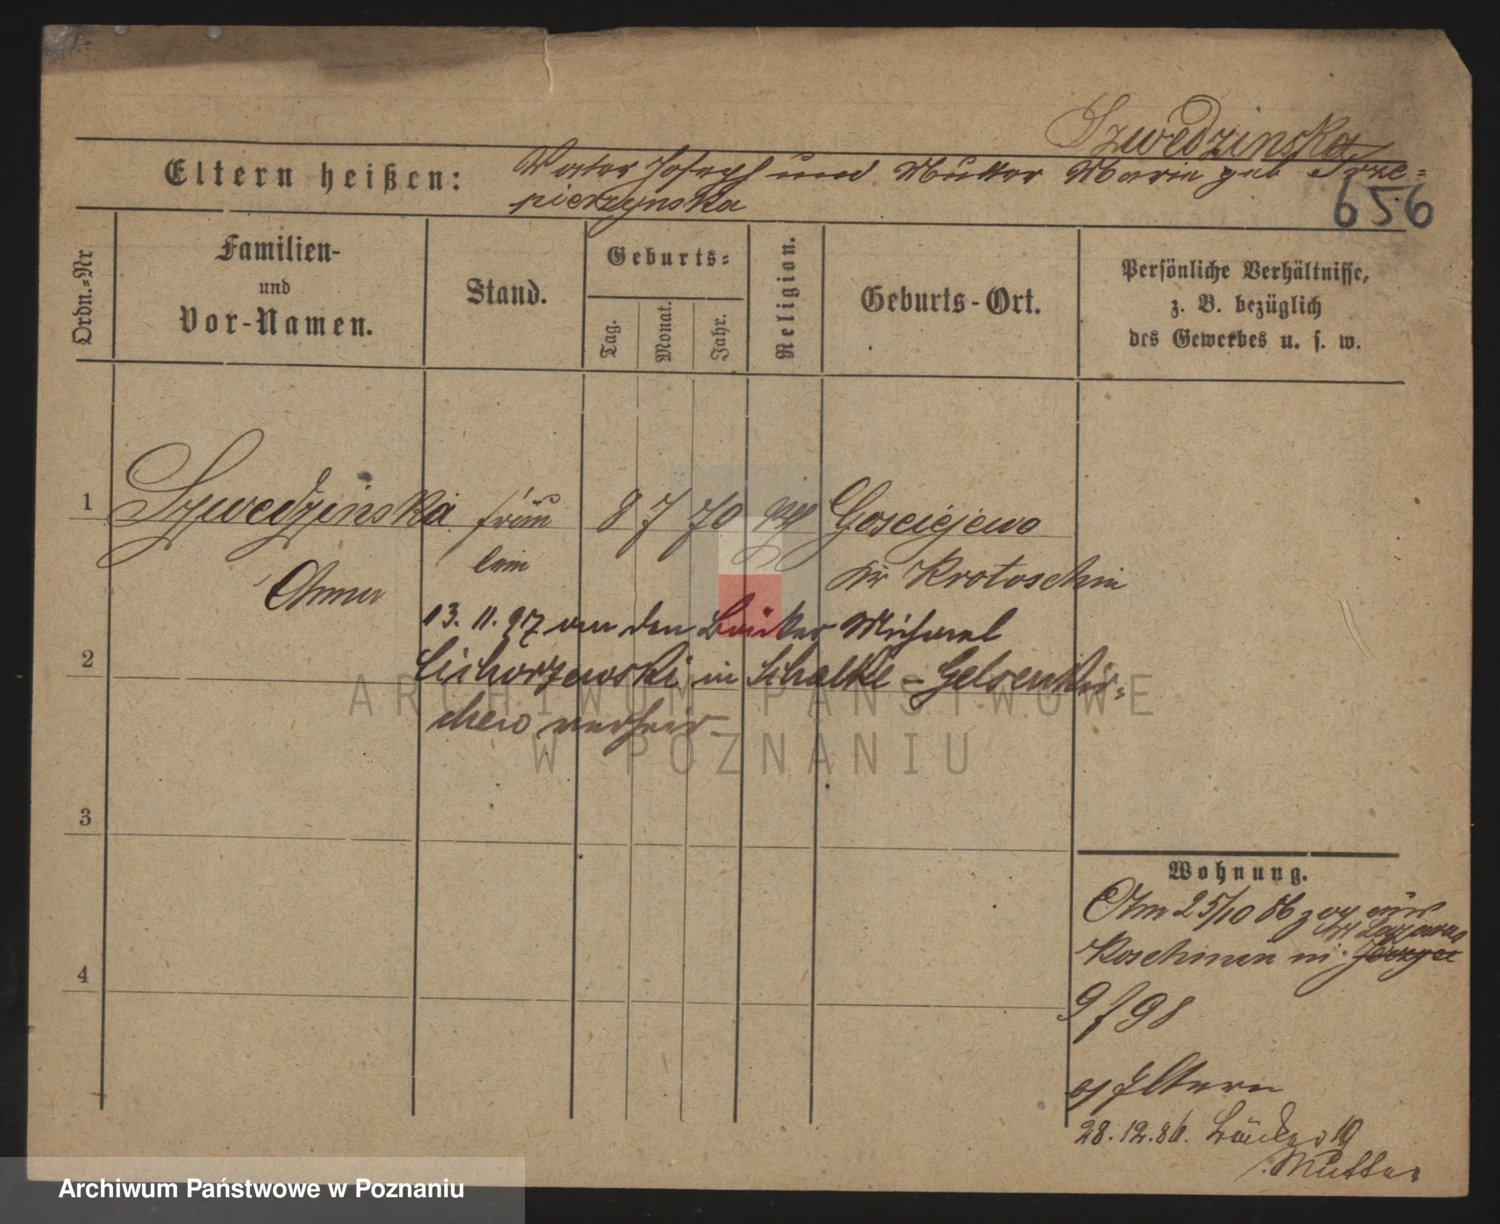 Szwedzinska
Eltern heißen: Vater Joseph und Mutter Marie geb Trze=
pierzynska
656
Ordn.-Nr
Familien-
und
Vor-Namen.
Stand.
Geburts-
Tag.
Monat.
Jahr.
Religion.
Geburts-Ort.
Persönliche Verhältnisse,
z. B. bezüglich
des Gewerbes u. s. w.
1 Szwedzinska Fräu 8 7 70 Gosciejewo
lein Kr Krotoschin
Anna
13. 11. 97 an den Bäcker Michael
2
Cichorzewski in Schalke-Gelsenkir=
chen verheir
ARCHIWUM PAŃSTWOWE
W POZNANIU
3
4
Wohnung.
Am 25/10 86 zog aus
Lazarus
Koschmin in Jerzyce
9/98
Eltern
28.12.86. Bäcker 19
Mutter
Archiwum Państwowe w Poznaniu